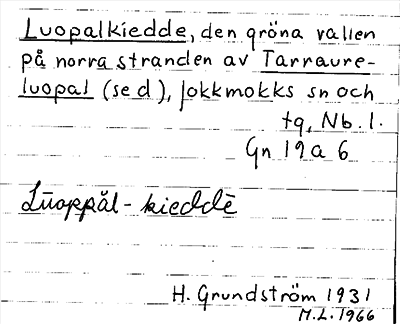 Luopalkiedde, den gröna vallen
på norra stranden av Tarraure-
luopal (se d), Jokkmokks sn och
tg, Nb. l.
Gn 19 a 6
Lūoppăl - kieddē
H. Grundström 1931
M.L. 1966